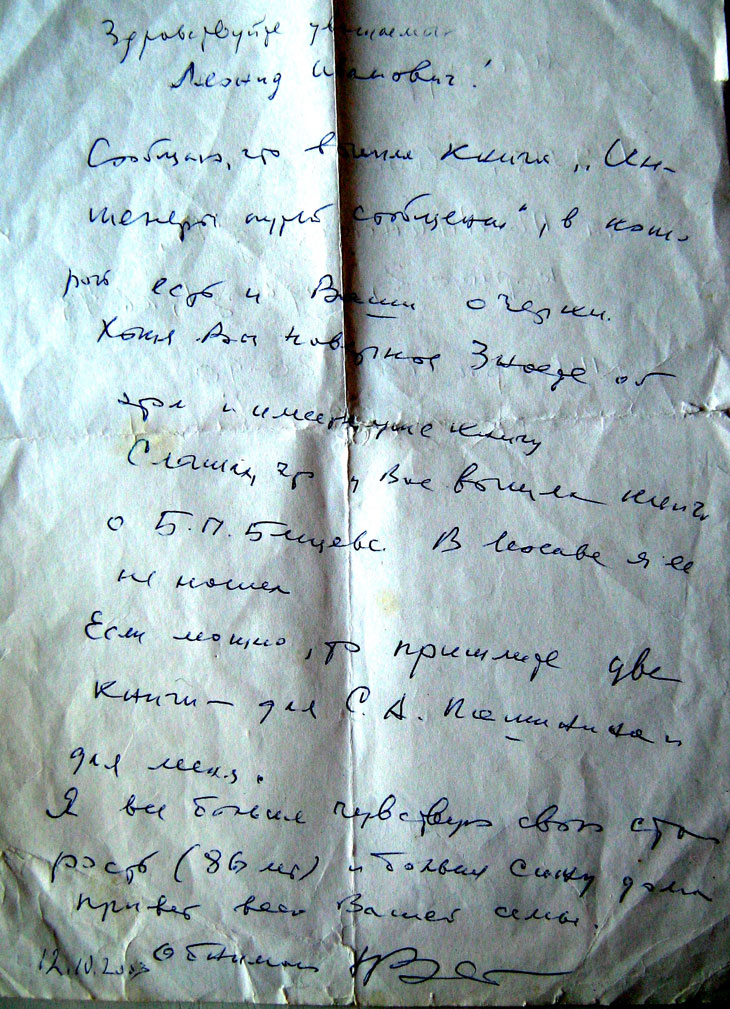 Здравствуйте уважаемый
Леонид Иванович!
Сообщаю, что вышла книга „Ин-
женеры путей сообщения", в кото
рой есть и Ваши очерки.
Хотя Вы наверное знаете об
этом и имеете уже книгу
Слышал, что у Вас вышла книга
о Б.П. Бещеве. В Москве я ее
не нашел
Если можно, то пришлите две
книги – для С. А. Пашинина и
для меня.
Я все больше чувствую свою ста
рость (86 лет) и больше сижу дома
Привет всей Вашей семье.
12.10.2003 Обнимаю